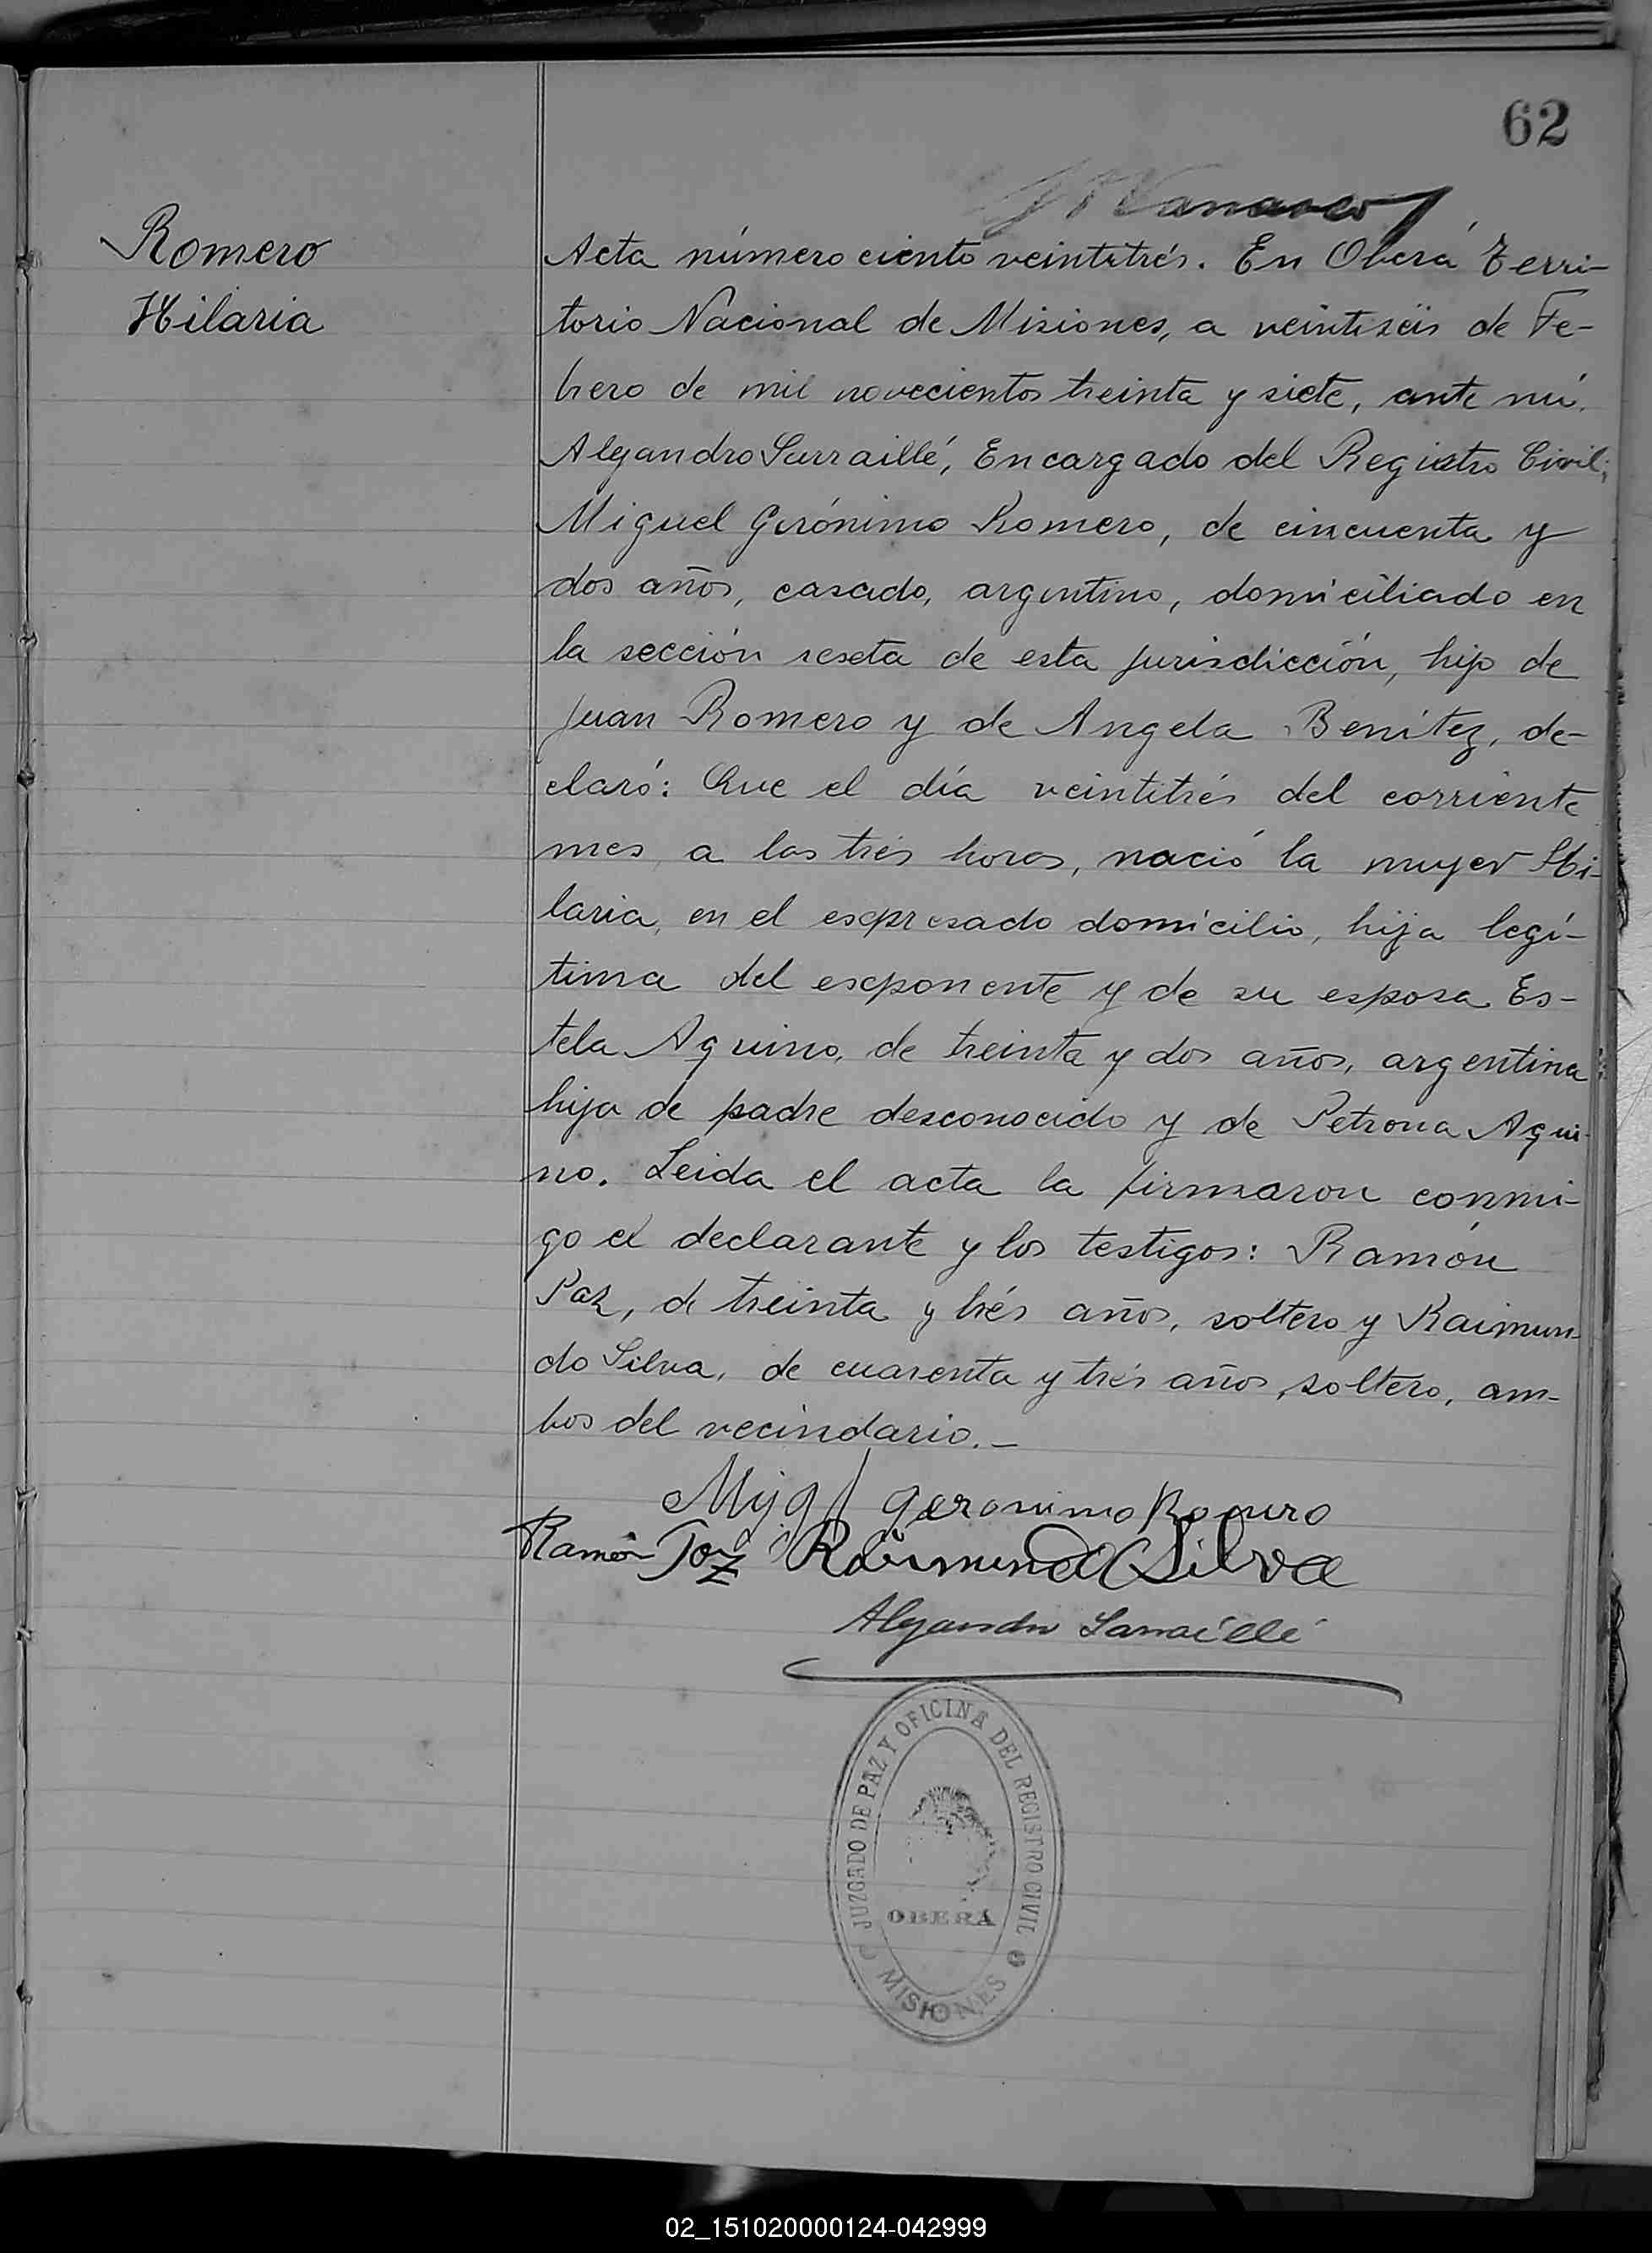 62
Romero
Hilaria
Acta número ciento veintitrés. En Oberá Terri-
torio Nacional de Misiones, a veintiseis de Fe-
brero de mil novecientos treinta y siete, ante mí,
Alejandro Sarraillé, Encargado del Registro Civil;
Miguel Gerónimo Romero, de cincuenta y
dos años, casado, argentino, domiciliado en
la sección sexta de esta jurisdicción, hijo de
Juan Romero y de Angela Benítez, de-
claró: Que el día veintitrés del corriente
mes, a las trés horas, nació la mujer Hi-
laria, en el expresado domicilio, hija legí-
tima del exponente y de su esposa Es-
tela Aquino, de treinta y dos años, argentina
hija de padre desconocido y de Petrona Aqui-
no. Leida el acta la firmaron conmi-
go el declarante y los testigos: Ramón
Paz, de treinta y trés años, soltero y Raimun-
do Silva, de cuarenta y trés años, soltero, am-
bos del vecindario.-
Migl Geronimo Romero
Ramón Paz Raimundo Silva
Alejandro Sarraillé
JUZGADO DE PAZ Y OFICINA DEL REGISTRO CIVIL
OBERÁ
MISIONES
02_151020000124-042999